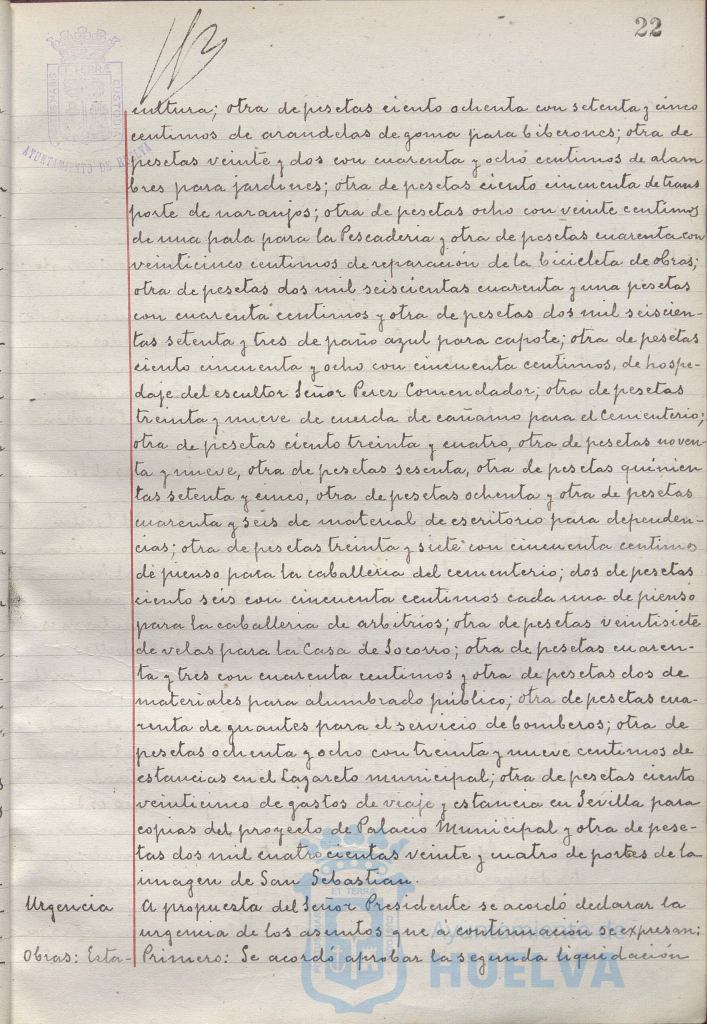 22
cultura; otra de pesetas ciento ochenta con setenta y cinco
centimos de arandelas de goma para biberones; otra de
pesetas veinte y dos con cuarenta y ocho centimos de alam
bres para jardines; otra de pesetas ciento cincuenta de trans
porte de naranjos; otra de pesetas ocho con veinte centimos
de una pala para la Pescaderia y otra de pesetas cuarenta con
veinticinco centimos de reparación de la bicicleta de obras;
otra de pesetas dos mil seiscientas cuarenta y una pesetas
con cuarenta centimos y otra de pesetas dos mil seiscien-
tas setenta y tres de paño azul para capote; otra de pesetas
ciento cincuenta y ocho con cincuenta centimos, de hospe-
daje del escultor Señor Perez Comendador; otra de pesetas
treinta y nueve de cuerda de cañamo para el Cementerio;
otra de pesetas ciento treinta y cuatro, otra de pesetas noven-
ta y nueve, otra de pesetas sesenta, otra de pesetas quinien-
tas setenta y cinco, otra de pesetas ochenta y otra de pesetas
cuarenta y seis de material de escritorio para dependen-
cias; otra de pesetas treinta y siete con cincuenta centimos
de pienso para la caballeria del cementerio; dos de pesetas
ciento seis con cincuenta centimos cada una de pienso
para la caballeria de arbitrios; otra de pesetas veintisiete
de velas para la Casa de Socorro; otra de pesetas cuaren-
ta y tres con cuarenta centimos y otra de pesetas dos de
materiales para alumbrado público; otra de pesetas cua-
renta de guantes para el servicio de bomberos; otra de
pesetas ochenta y ocho con treinta y nueve centimos de
estancias en el Lazareto municipal; otra de pesetas ciento
veinticinco de gastos de viaje y estancia en Sevilla para
copias del proyecto de Palacio Municipal y otra de pese-
tas dos mil cuatrocientas veinte y cuatro de portes de la
imagen de San Sebastian.
Urgencia A propuesta del Señor Presidente se acordó declarar la
urgencia de los asuntos que a continuación se expresan;
Obras: Esta- Primero: Se acordó aprobar la segunda liquidación
AYUNTAMIENTO DE HUELVA
Ayuntamiento de
HUELVA